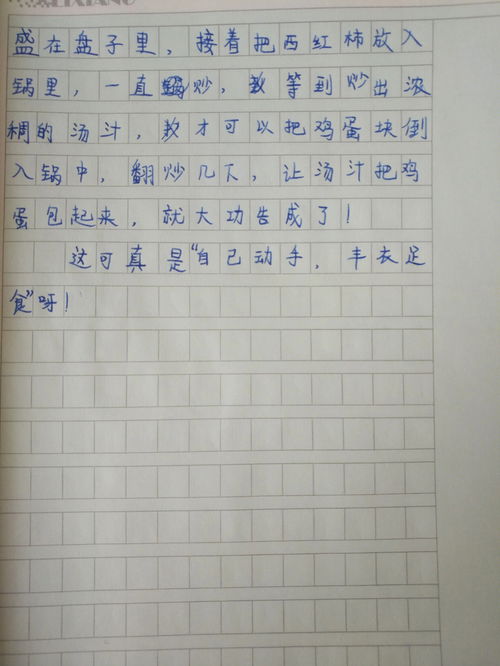 盛在盘子里，接着把西红柿放入
锅里，一直炒，等到炒出浓
稠的汤汁，才可以把鸡蛋块倒
入锅中，翻炒几下，让汤汁把鸡
蛋包起来，就大功告成了！
这可真是“自己动手，丰衣足
食”呀！